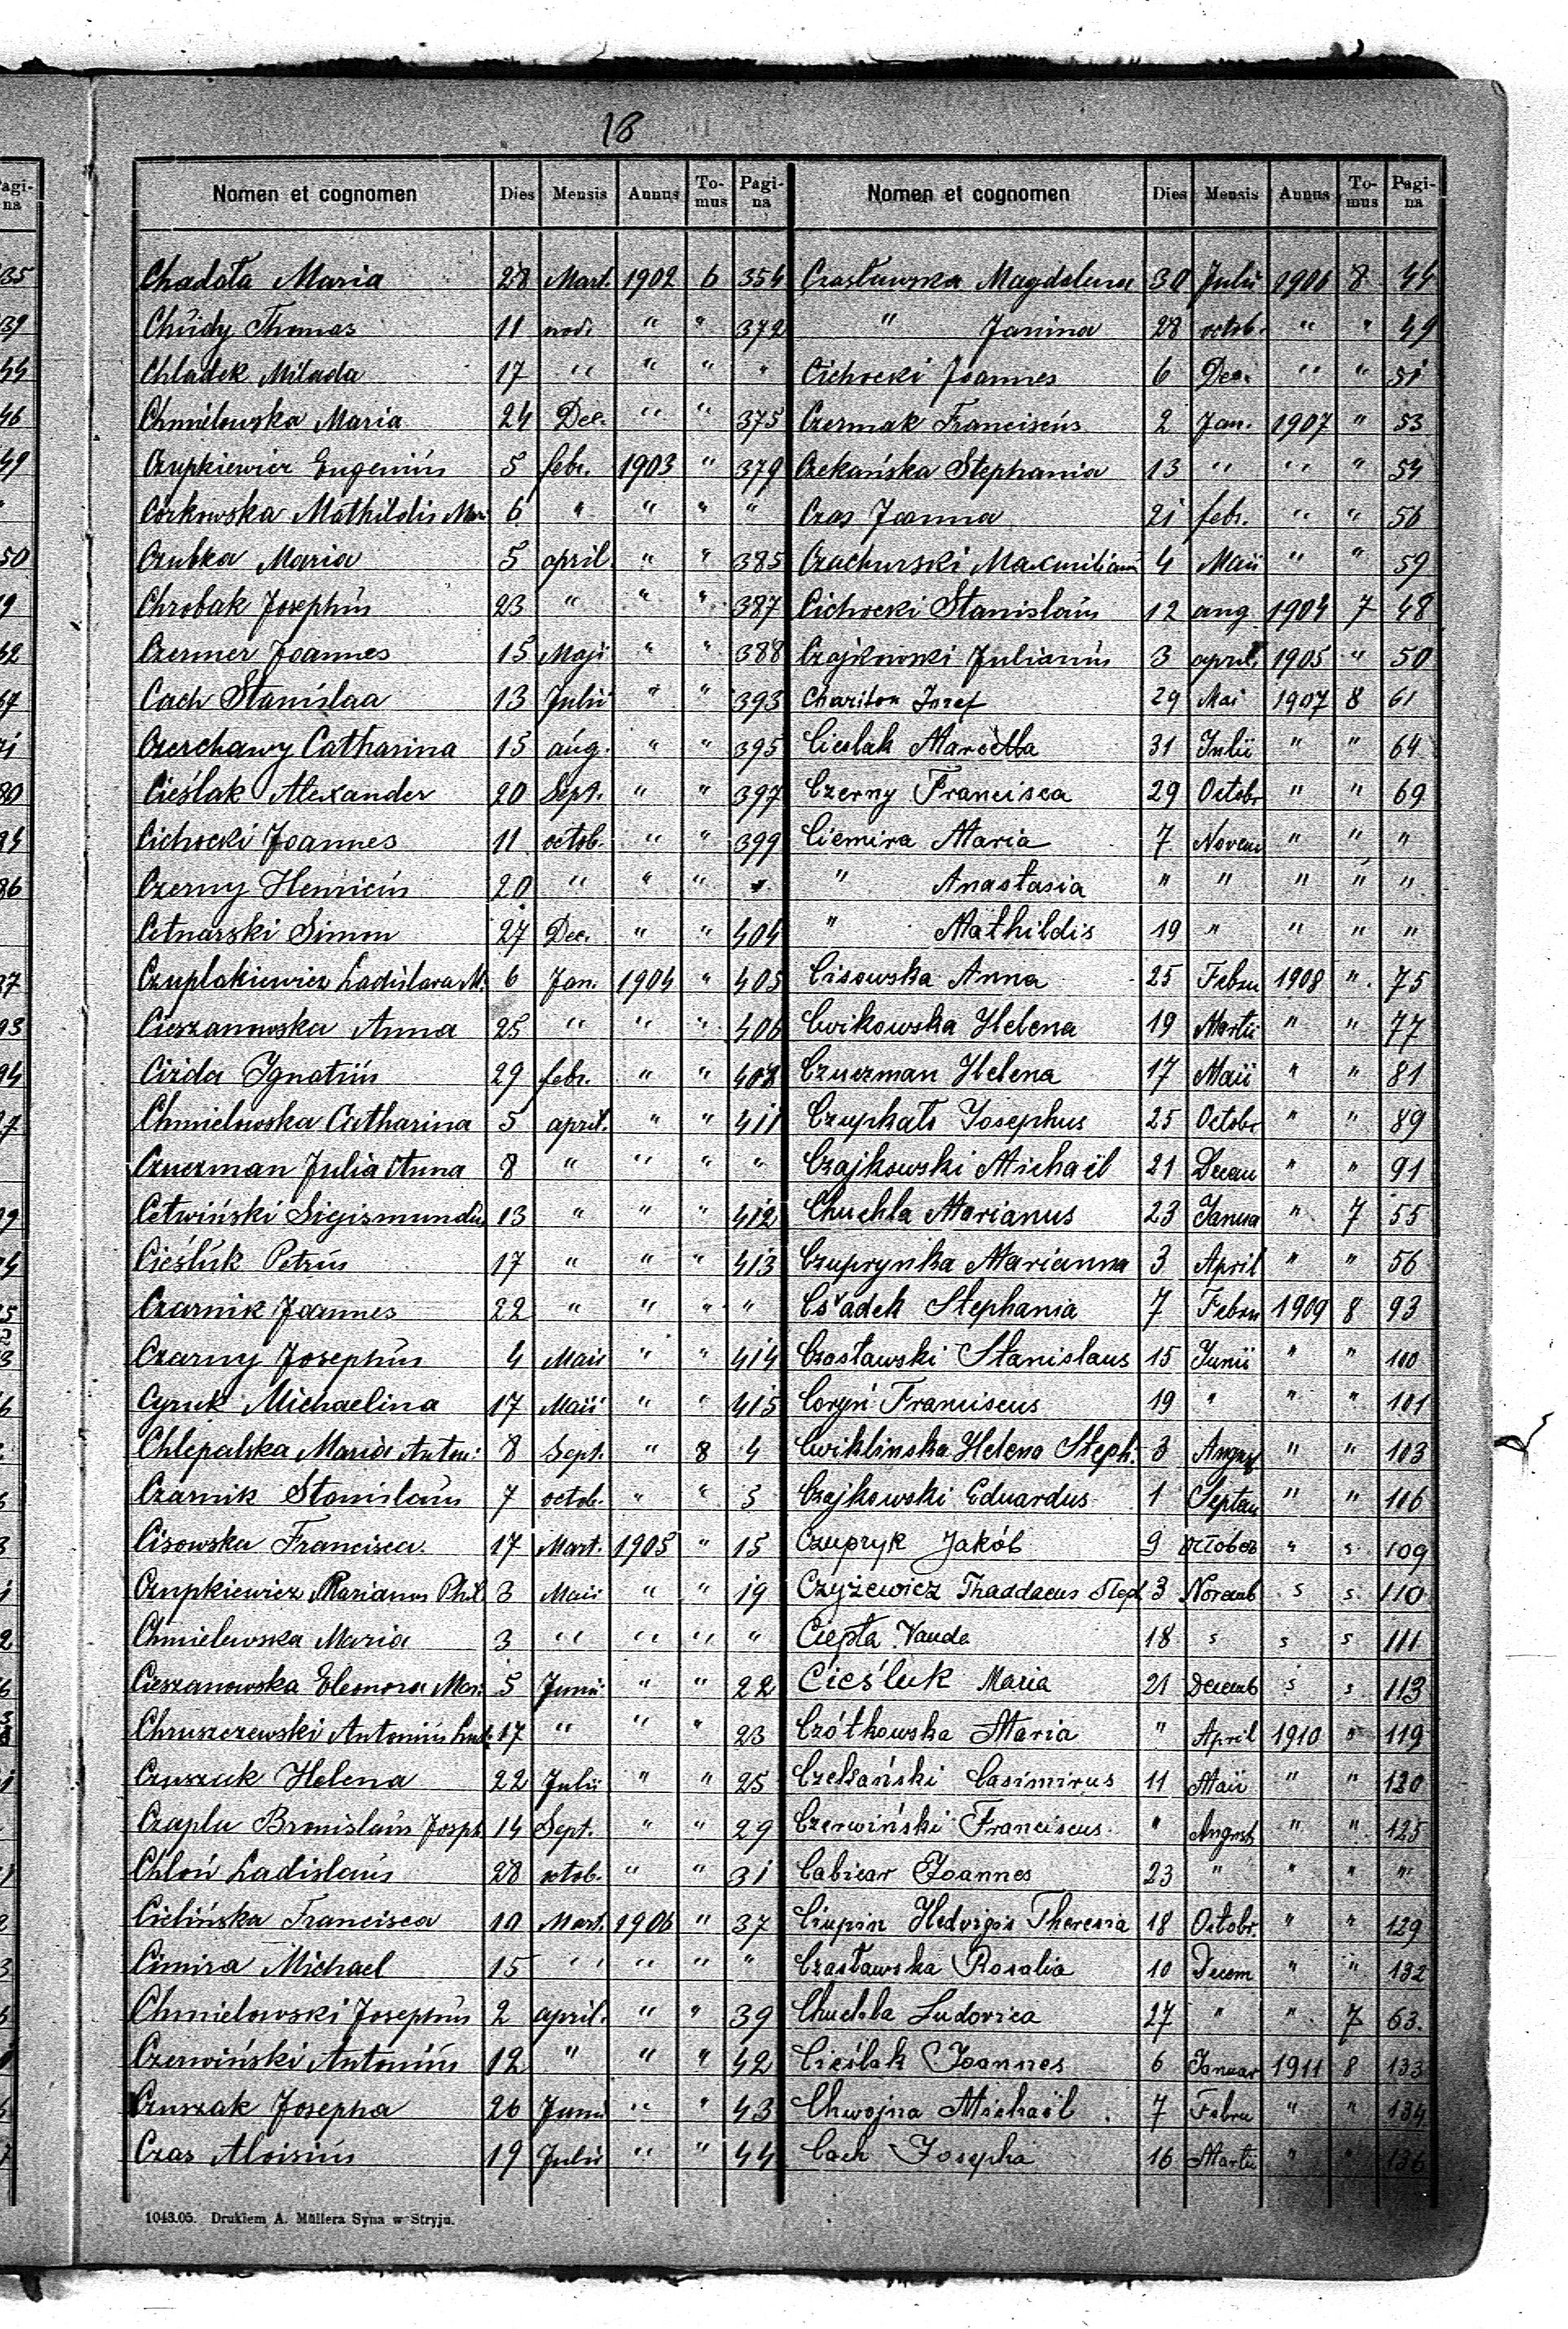 18
Nomen et cognomen Dies Mensis Annus Tomus Pagina
Chadała Maria 28 Mart. 1902 6 354
Chudy Thomas 11 nov. " " 372
Chladek Milada 17 " " " "
Chmielowska Maria 24 Dec. " " 375
Czupkiewicz Eugenius 5 febr. 1903 " 379
Corkowska Mathildis Mar 6 " " " "
Czubka Maria 5 april " " 385
Chrobak Josephus 23 " " " 387
Czermer Joannes 15 Maji " " 388
Cach Stanislaa 13 Julii " " 393
Czerchawy Catharina 15 aug. " " 395
Cieślak Alexander 20 Sept. " " 397
Cichocki Joannes 11 octob. " " 399
Czerny Henricus 20 " " " "
Cetnarski Simon 27 Dec. " " 404
Czuplakiewicz Ladislava M. 6 Jan. 1904 " 405
Cieszanowska Anna 25 " " " 406
Ciżda Ignatius 29 febr. " " 408
Chmielowska Catharina 5 april. " " 411
Czuczman Julia Anna 8 " " " "
Cetwiński Sigismundus 13 " " " 412
Cieśluk Petrus 17 " " " 413
Czarnik Joannes 22 " " " "
Czarny Josephus 4 Maii " " 414
Cyruk Michaelina 17 Maii " " 415
Chlepalska Maria Anton: 8 Sept. " 8 4
Czarnik Stanislaus 7 octob. " " 5
Cisowska Francisca. 17 Mart. 1905 " 15
Czupkiewicz Marianus Phil 3 Maii " " 19
Chmielewska Maria 3 " " " "
Cieszanowska Eleonora Mar. 5 Junii " " 22
Chruszczewski Antonius 17 " " " 23
Czuszak Helena 22 Julii " " 25
Czapla Bronislaus Josph 14 Sept. " " 29
Chloń Ladislaus 28 octob. " " 31
Cielińska Francisca 10 Mart. 1906 " 37
Cimira Michael 15 " " " "
Chmielowski Josephus 2 april. " " 39
Czerwiński Antonius 12 " " " 42
Czuszak Josepha 26 Junii " " 43
Czas Aloisius 19 Julii " " 44
Nomen et cognomen Dies Mensis Annus Tomus Pagina
Czasławska Magdalena 30 Julii 1906 8 44
" Janina 28 octob. " " 49
Cichocki Joannes 6 Dec. " " 51
Czermak Franciscus 2 Jan. 1907 " 53
Czekańska Stephania 13 " " " 54
Czas Joanna 21 febr. " " 56
Czachurski Maxmilianus 4 Maii " " 59
Cichocki Stanislaus 12 aug. 1904 7 48
Czajkowski Julianus 3 april. 1905 " 50
Chariton Jozef 29 Mai 1907 8 61
Cieslak Marcella 31 Julii " " 64
Czerny Francisca 29 Octobr " " 69
Ciemira Maria 7 Novem " " "
" Anastasia " " " " "
" Mathildis 19 " " " "
Cisowska Anna 25 Febru 1908 " 75
Cwikowska Helena 19 Martii " " 77
Czuczman Helena 17 Maii " " 81
Czupkało Josephus 25 Octobr " " 89
Czajkowski Michaël 21 Decem " " 91
Chuchla Marianus 23 Janua " 7 55
Czuprynka Marianna 3 April " " 56
Csadek Stephania 7 Febru 1909 8 93
Czasławski Stanislaus 15 Junii " " 100
Coryń Franciscus 19 " " " 101
Cwiklinska Helena Steph. 3 August " " 103
Czajkowski Eduardus 1 Septem " " 106
Czupryk Jakób 9 October " s 109
Czyżewicz Thaddaeus Step 3 Novemb s s 110
Ciepła Vanda 18 s s s 111
Cieśluk Maria 21 Decemb s s 113
Czółkowska Maria " April 1910 " 119
Czekański Casimirus 11 Maii " " 120
Czerwiński Franciscus " August " " 125
Cabicar Joannes 23 " " " "
Ciupin Hedvigis Theresia 18 Octobr. " " 129
Czasławska Rosalia 10 Decem " " 132
Chuchla Ludovica 27 " " 7 63.
Cieślak Joannes 6 Januar 1911 8 133
Chwojna Michaël 7 Febru " " 134
Cach Josepha 16 Martii " " 136
1043.05. Drukiem A. Müllera Syna w Stryju.